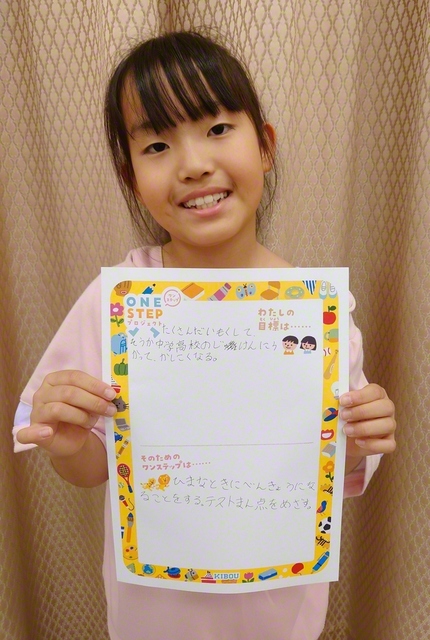 ONE
STEP
プロジェクト
わたしの
目標は……
たくさんだいもくして
そうか中学高校のじゅけんにう
かって、かしこくなる。
そのための
ワンステップは……
ひまなときにべんきょうにな
ることをする。テストまん点をめざす。
KIBOU